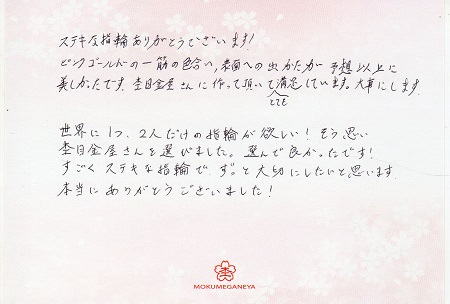 ステキな指輪ありがとうございます!
ピンクゴールドの一筋の色合い,表面への出かたが予想以上に
美しかったです。杢目金屋さんに作って頂いてとても満足しています。大事にします。
世界に1つ、2人だけの指輪が欲しい!そう思い
杢目金屋さんを選びました。選んで良かったです!
すごくステキな指輪で ずっと大切にしたいと思います
本当にありがとうございました!
杢
MOKUMEGANEYA